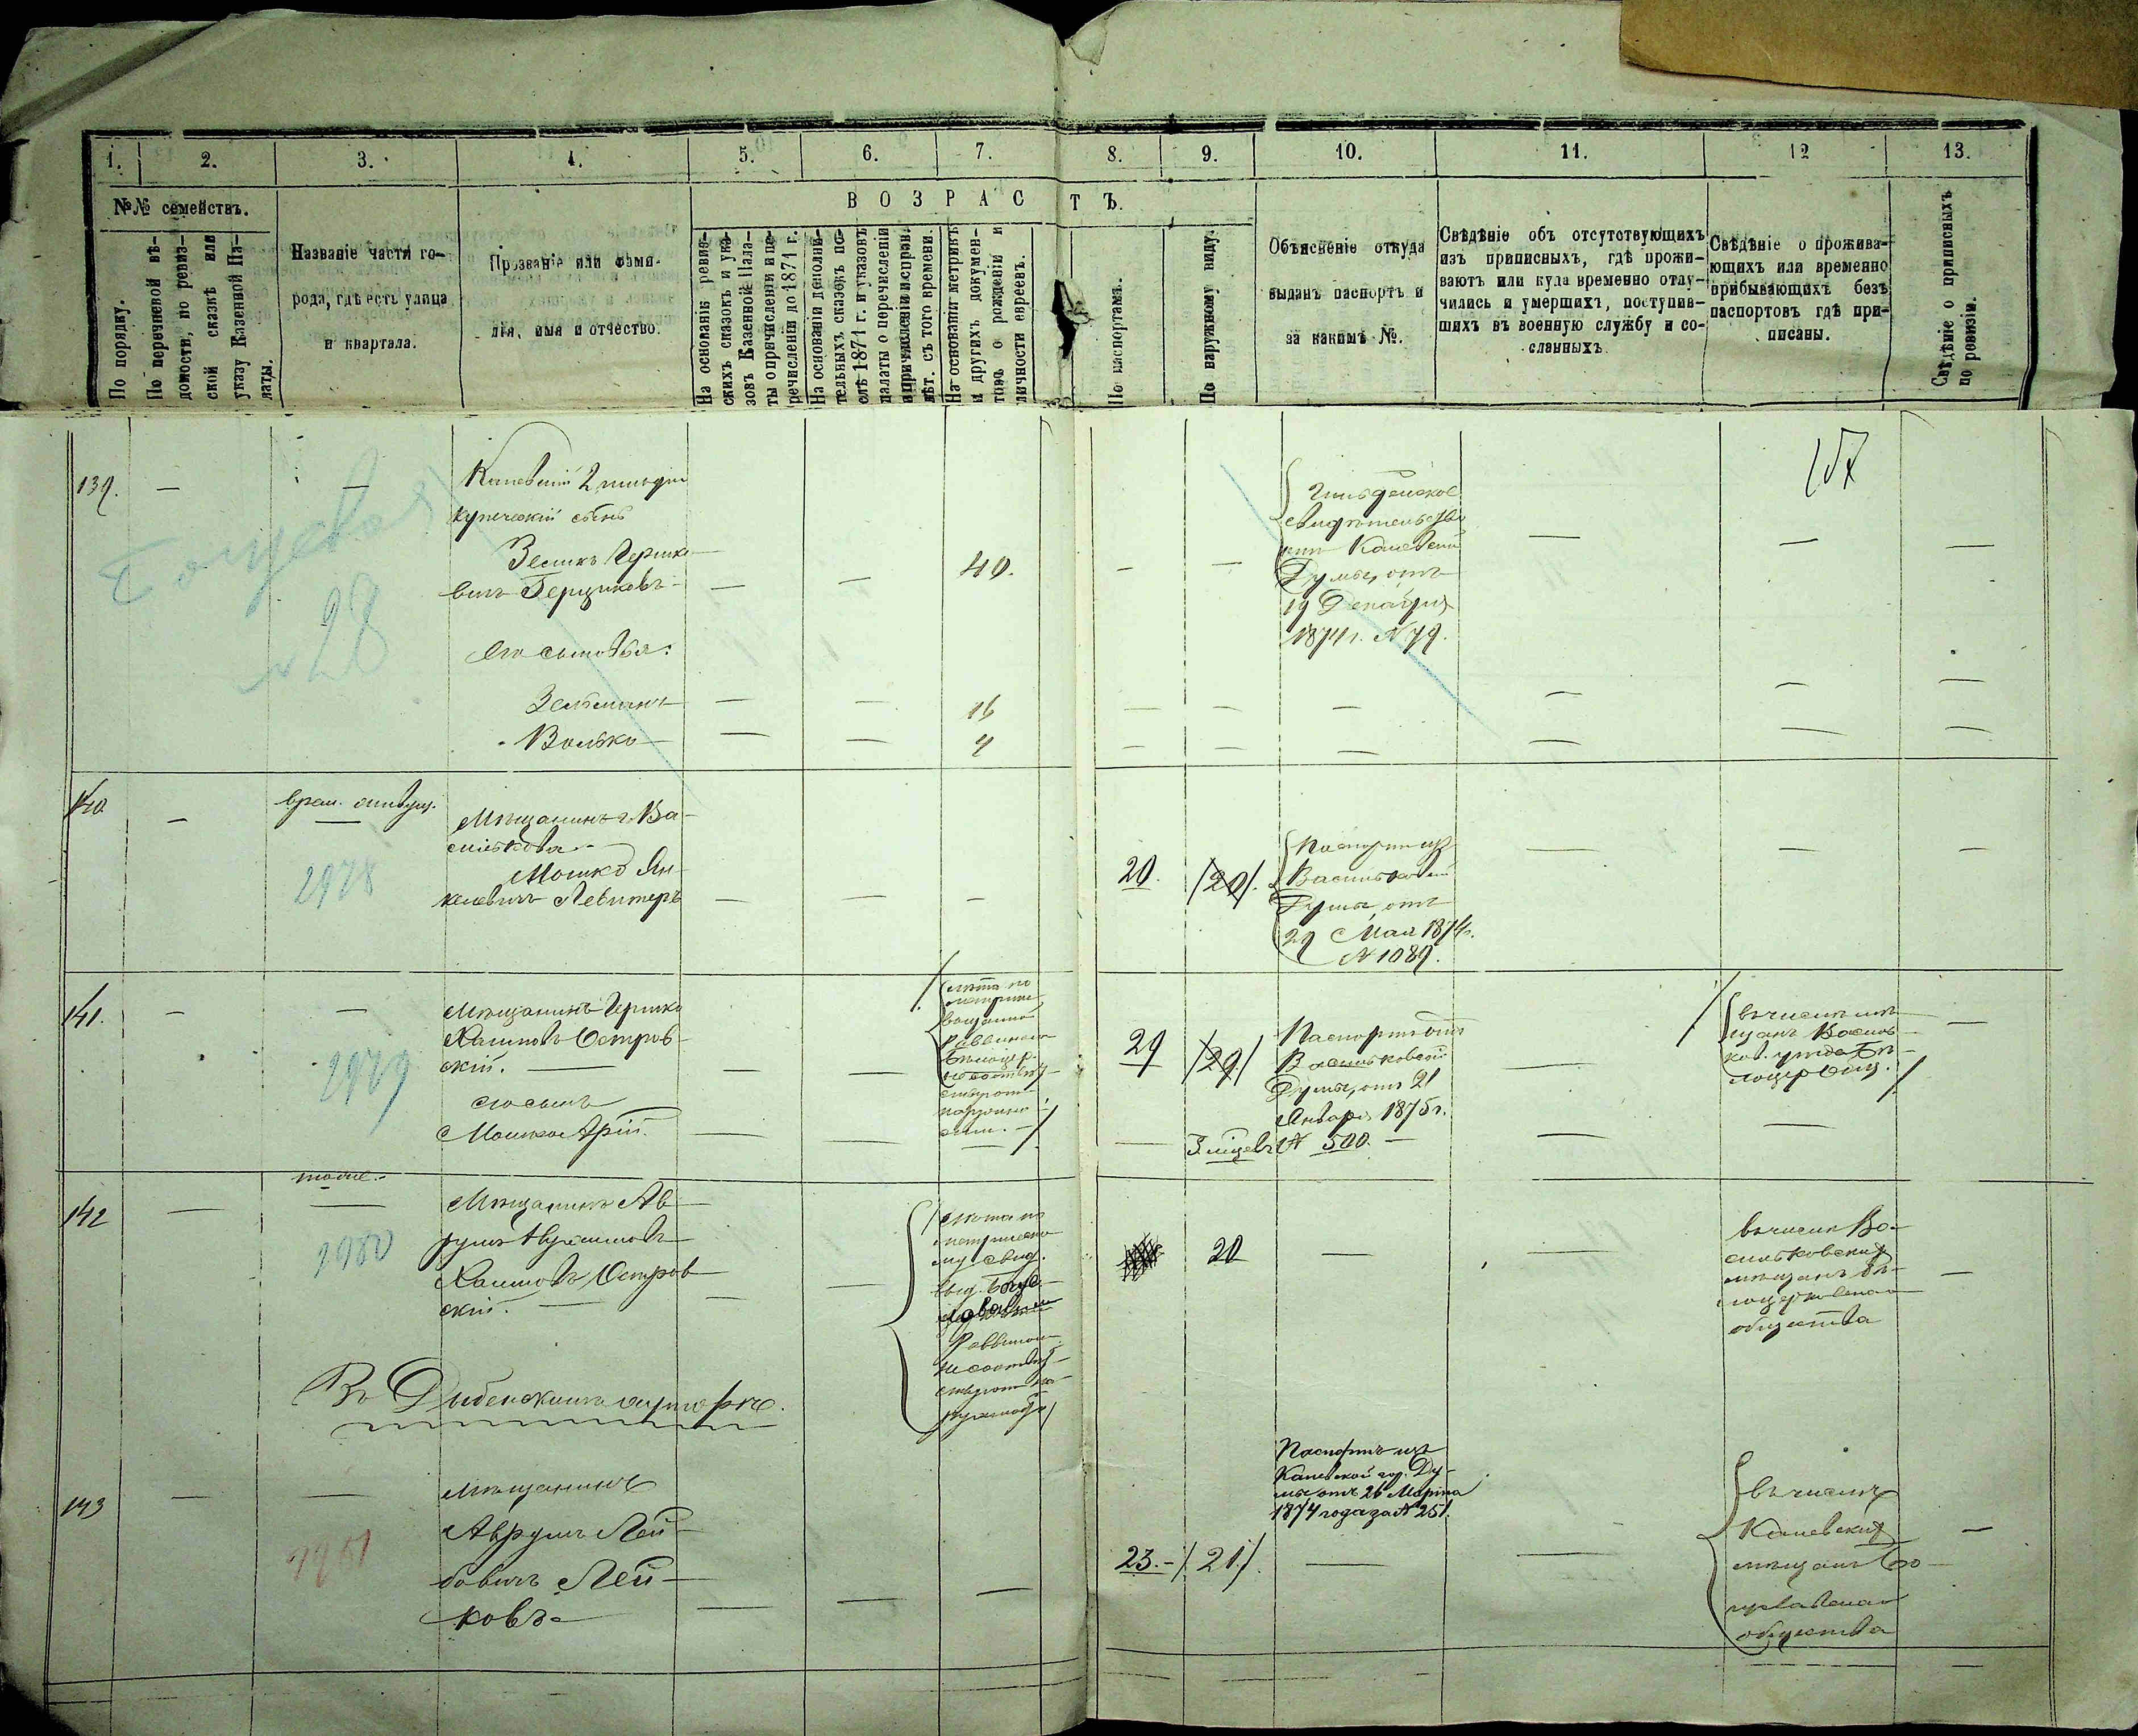 1. 2. 3. 4. 5. 6. 7. 8. 9. 10. 11. 12 13.
№№ семействъ.
По порядку.
По перечневой вѣ-
домости, по ревиз-
ской сказкѣ или
указу Казенной Па-
латы.
Названіе части го-
рода, гдѣ есть улица
и квартала.
Прозваніе или фами-
лія, имя и отчество.
ВОЗРАСТЪ.
На основаніи ревиз-
скихъ сказокъ и ука-
зовъ Казенной Пала-
ты о причисленіи и пе-
речисленіи до 1871 г.
На основаніи дополни-
тельныхъ сказокъ по-
слѣ 1871 г. и указовъ
палаты о перечисленіи
и причисленіи и исправ.
лѣт. съ того времени.
На основаніи метрикъ
и другихъ докумен-
товъ о рожденіи и
личности евреевъ.
По паспортамъ.
По наружному виду.
Объясненіе откуда
выданъ паспортъ и
за какимъ №.
Свѣдѣніе объ отсутствующихъ
изъ приписныхъ, гдѣ прожи-
ваютъ или куда временно отлу-
чились и умершихъ, поступив-
шихъ въ военную службу и со-
сланныхъ.
Свѣдѣніе о прожива-
ющихъ или временно
прибывающихъ безъ
паспортовъ гдѣ при-
писаны.
Свѣдѣніе о приписныхъ
по ревизіи.
139. — —
Каневскій 2 гильдіи
купеческій сынъ
Зесикъ Гершко
вичъ
— — 40. — —
Гильдейское
свидѣтельство
Каневской
Думы, отъ
19 Декабря
1874 г. № 79.
— — —
№ 28
его сыновья:
Зельманъ — — 16 — — — — — —
Волько — — 4 — — — — — —
140 —
2978
Мѣщанинъ г. Ва-
силькова
Мошко Ян-
келевичъ Левитеръ — — —
20. /20/.
Паспортъ изъ
Васильковской
Думы, отъ
29 Мая 1874 г.
№ 1089.
— — —
141. — —
2979
Мѣщанинъ Гершко
Хаимовъ Остров-
скій. — — —
его сынъ
Мошко Арій. — —
лѣта по
метрикѣ
выданной
Раввиномъ
Бѣлоцер.
29 /29/
Паспортъ отъ
Васильковской
Думы, отъ 21
Января 1875 г.
№ 500. —
— —
въ числѣ мѣ-
щанъ Василь-
ков. уѣзда Бѣ-
лоцерковц.
—
тоже.
142 — —
2980
Мѣщанинъ Ав-
румъ Авраамовъ
Хаимовъ Остров-
скій. — — —
лѣта по
метрическо
му свид.
выд. Богус
лавскимъ
Раввиномъ
не соотвѣт-
ствуютъ на-
ружности
20 — —
въ числѣ Ва-
сильковскихъ
мѣщанъ Бѣ-
лоцерковскаго
общества
—
Въ Дыбенскомъ хуторѣ.
143 — —
2981
Мѣщанинъ
Аврумъ Лей-
бовичъ Лей-
ковъ — — —
23. — /21/.
Паспортъ изъ
Каневской гор. Ду-
мы отъ 26 Марта
1874 года за № 251.
— —
въ числѣ
Каневскихъ
мѣщанъ Бо-
гуславскаго
общества
—